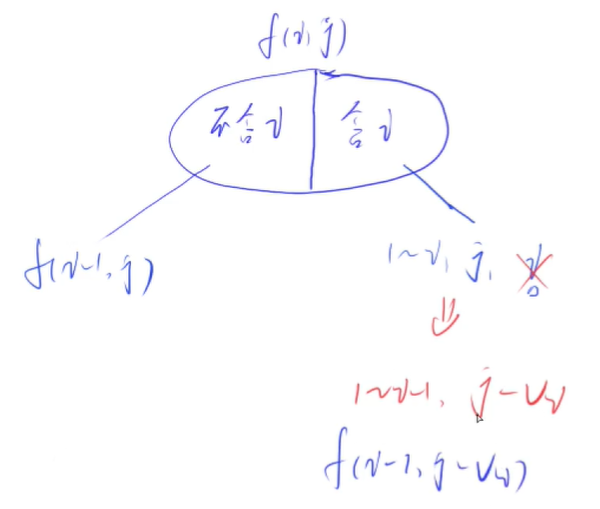 f(i, j)
不含i 含i
f(i-1, j)
1~i, j, 含i
⇓
1~i-1, j-Vi
f(i-1, j-Vi)